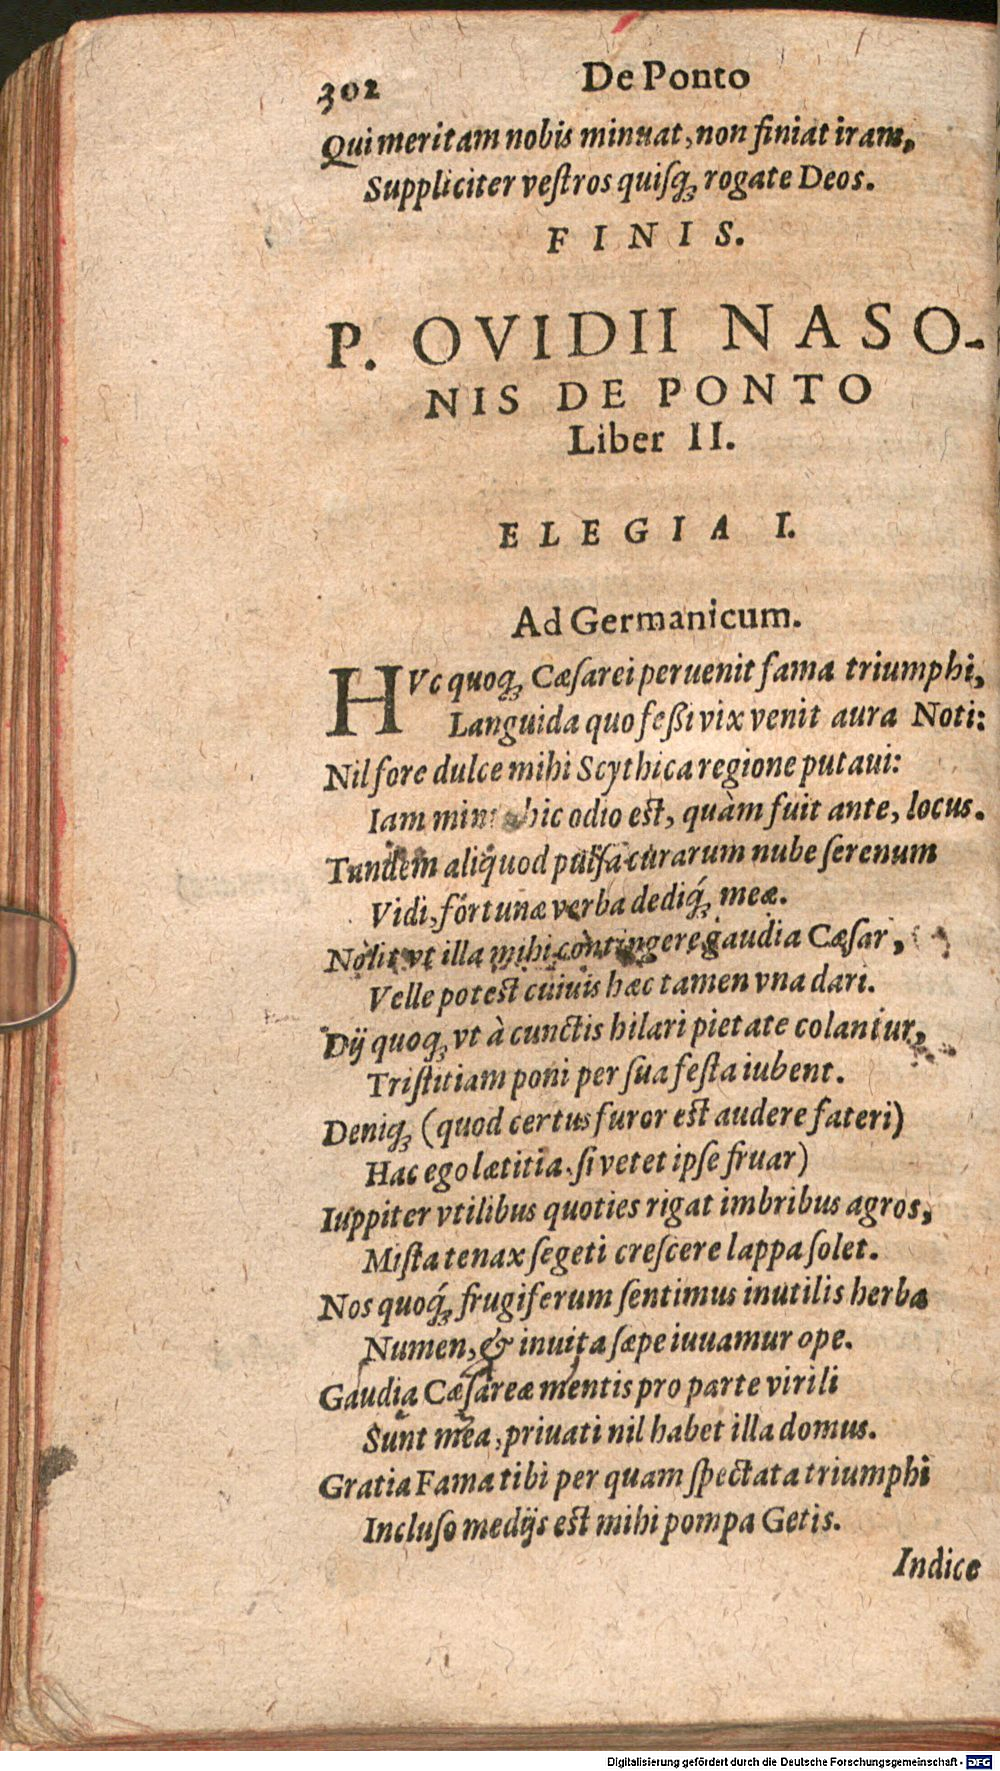 302 De Ponto
Qui meritam nobis minuat, non finiat iram,
Suppliciter veſtros quiſq; rogate Deos.
FINIS.
P. OVIDII NASO-
NIS DE PONTO
Liber II.
ELEGIA I.
Ad Germanicum.
HVc quoq; Cæſarei peruenit fama triumphi,
Languida quo feßi vix venit aura Noti:
Nil fore dulce mihi Scythica regione putaui:
Iam hic odio eſt, quàm fuit ante, locus.
Tandem aliquod pulſa curarum nube ſerenum
Vidi, fortunæ verba dediq́; meæ.
Nolit vt illa mihi contingere gaudia Cæſar,
Velle poteſt cuiuis hæc tamen vna dari.
Dij quoq; vt à cunctis hilari pietate colantur,
Triſtitiam poni per ſua feſta iubent.
Deniq; (quod certus furor eſt audere fateri)
Hac ego lætitia, ſi vetet ipſe fruar)
Iuppiter vtilibus quoties rigat imbribus agros,
Miſta tenax ſegeti creſcere lappa ſolet.
Nos quoq́; frugiferum ſentimus inutilis herba
Numen, & inuita ſæpe iuuamur ope.
Gaudia Cæſareæ mentis pro parte virili
Sunt mea, priuati nil habet illa domus.
Gratia Fama tibi per quam ſpectata triumphi
Incluſo medijs eſt mihi pompa Getis.
Indice
Digitalisierung gefördert durch die Deutsche Forschungsgemeinschaft - DFG